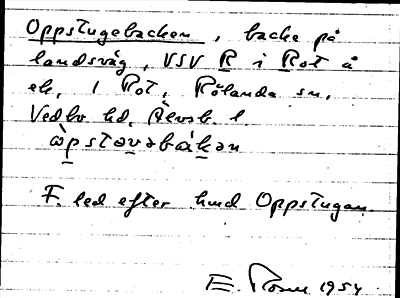 Oppstugebacken, backe på
landsväg, VSV R i Rot å
ek, 1 Rot, Rölanda sn,
Vedbo hd, Älvsb. l.
åpstəvəbàkən
F. led efter hmd Oppstugan.
E. 1954